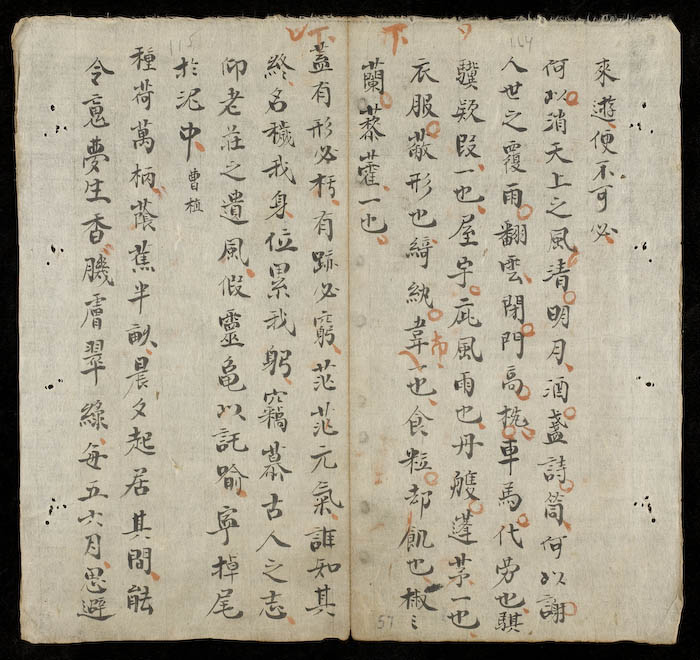 來遊便不可必
何以消天上之風清明月酒盞詩筒何以謝
人世之覆雨翻雲閉門高枕車馬代勞也騏
驥款段一也屋宇庇風雨也丹艧蓬茅一也
衣服蔽形也綺紈韋布一也食粒却飢也椒ミ
蘭藜藿一也
蓋有形必朽有跡必窮茫茫元氣誰知其
終名穢我身位累我躬竊慕古人之志
仰老莊之遺風假靈龜以託喻寧掉尾
於泥中 曹植
種荷萬柄蔭蕉半畝晨夕起居其間能
令䰟夢生香肌膚翠綠每五六月思避